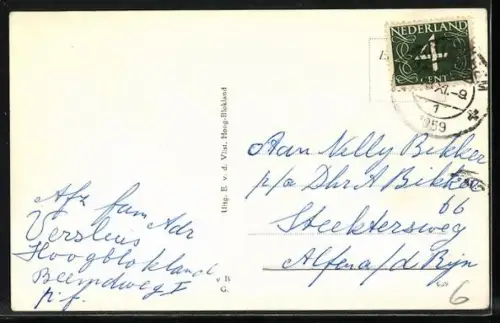 NEDERLAND
4
CENT
XI.-9
1
1959
Uitg. E. v. d. Vlist, Hoog-Blokland
Aan Nelly Bikker
p/a Dhr A Bikker
66
Steektersweg
Alfen a/d Rijn
Afz fam Adr
Versluis
Hoogblokland
Beemdweg I
p.f.
v B
G.
6